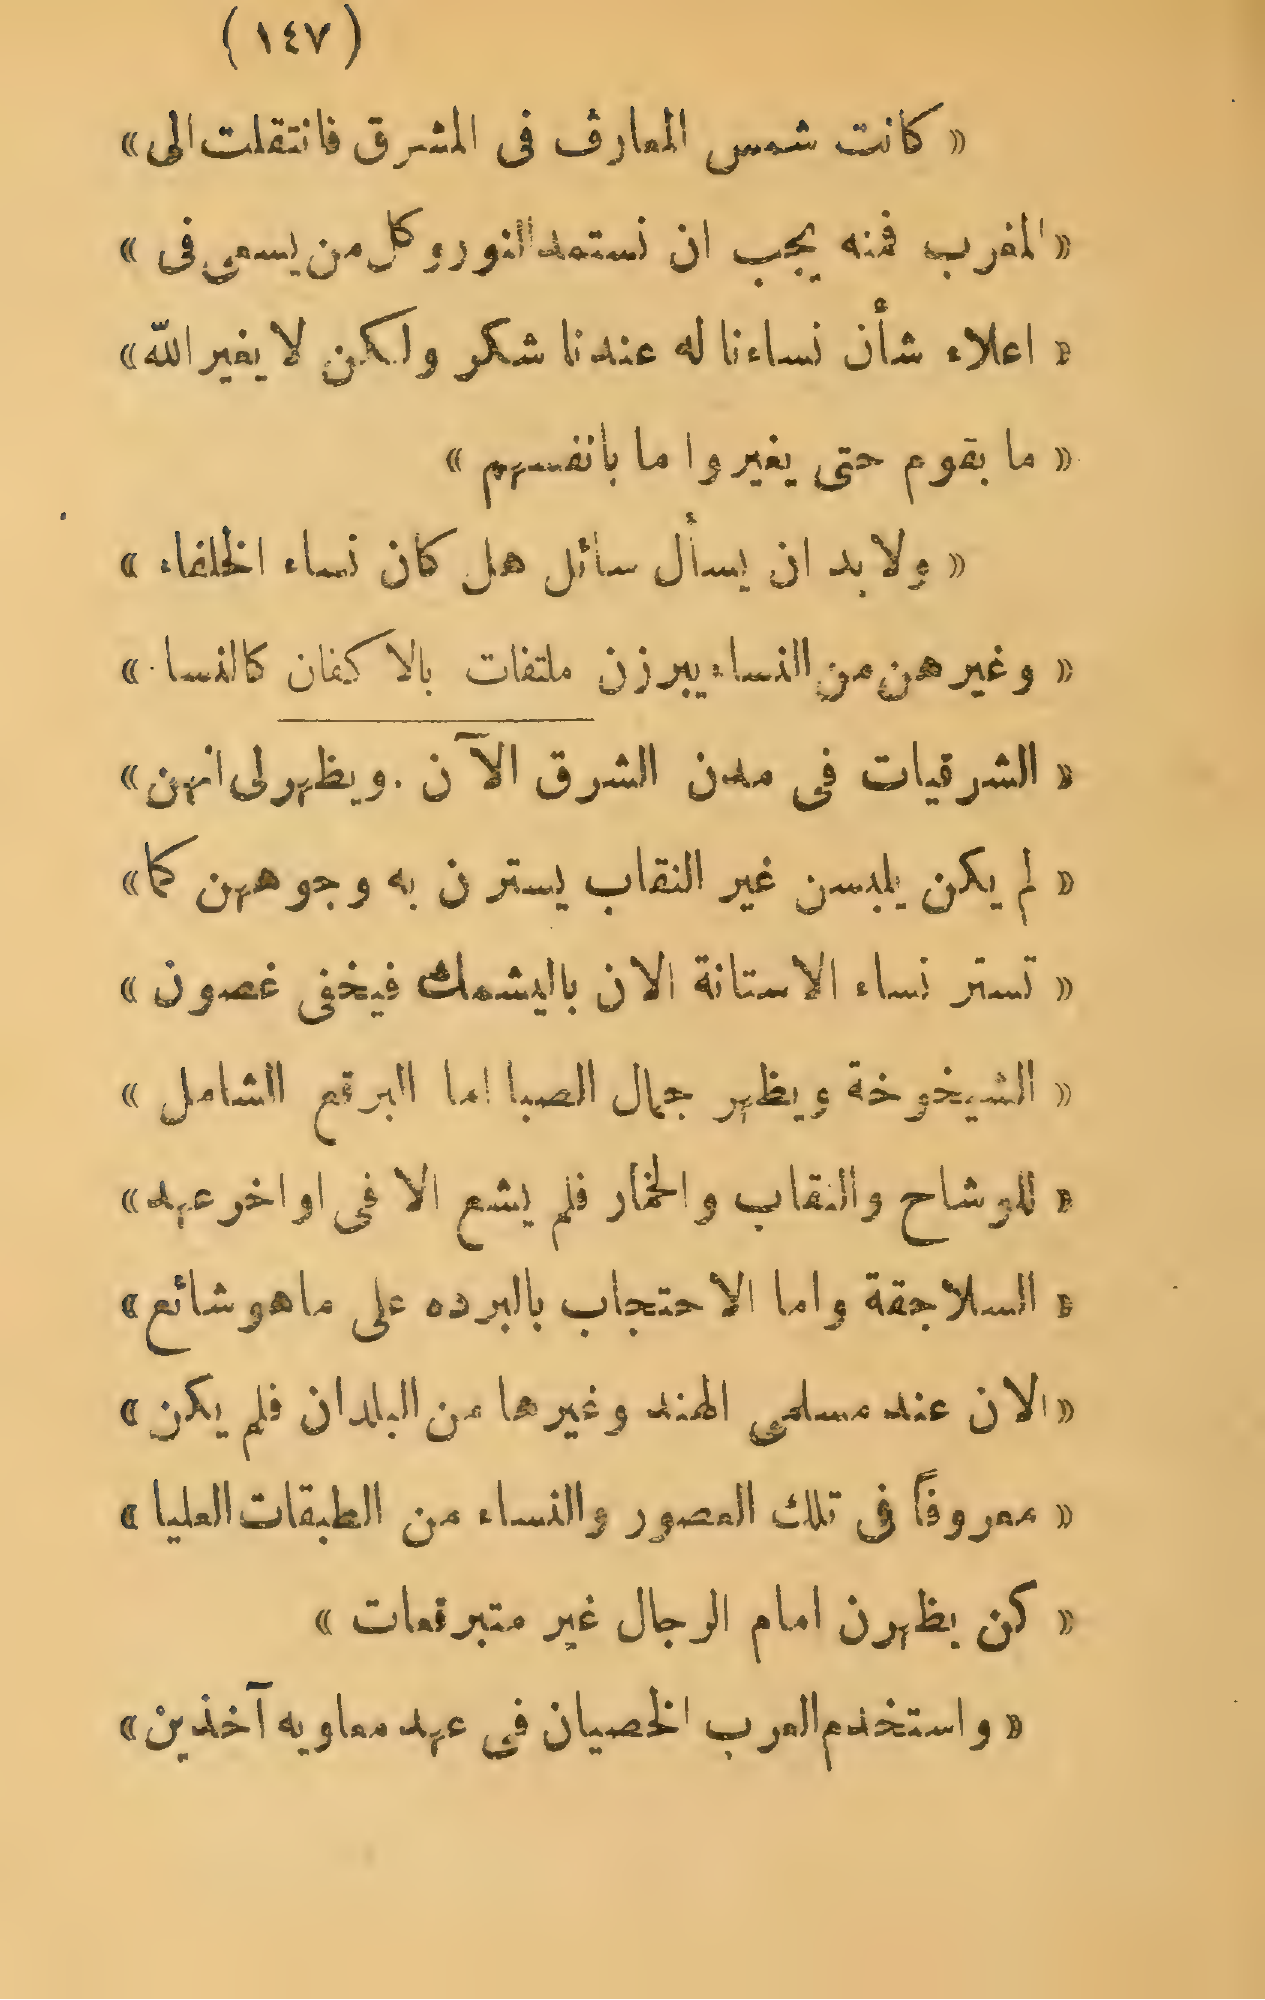 ( ١٤٧ )
« كانت شمس المعارف فى المشرق فانتقلت الى »
« المغرب فمنه يجب ان نستمد النور وكل من يسعى فى »
« اعلاء شأن نساءنا له عندنا شكر ولكن لا يغير الله »
« ما بقوم حتى يغيروا ما بانفسهم »
« ولا بد ان يسأل سائل هل كان نساء الخلفاء »
« وغيرهن من النساء يبرزن ملتفات بالاكفان كالنسا »
« الشرقيات فى مدن الشرق الآن . ويظهر لى انهن »
« لم يكن يلبسن غير النقاب يسترن به وجوههن كما »
« تستر نساء الاستانة الان باليشمك فيخفى غصون »
« الشيخوخة ويظهر جمال الصبا اما البرقع الشامل »
« للوشاح والنقاب والخمار فلم يشع الا فى اواخر عهد »
« السلاجقة واما الاحتجاب بالبرده على ما هو شائع »
« الان عند مسلمى الهند وغيرها من البلدان فلم يكن »
« معروفاً فى تلك العصور والنساء من الطبقات العليا »
« كن يظهرن امام الرجال غير متبرقعات »
« واستخدم العرب الخصيان فى عهد معاويه آخذين »